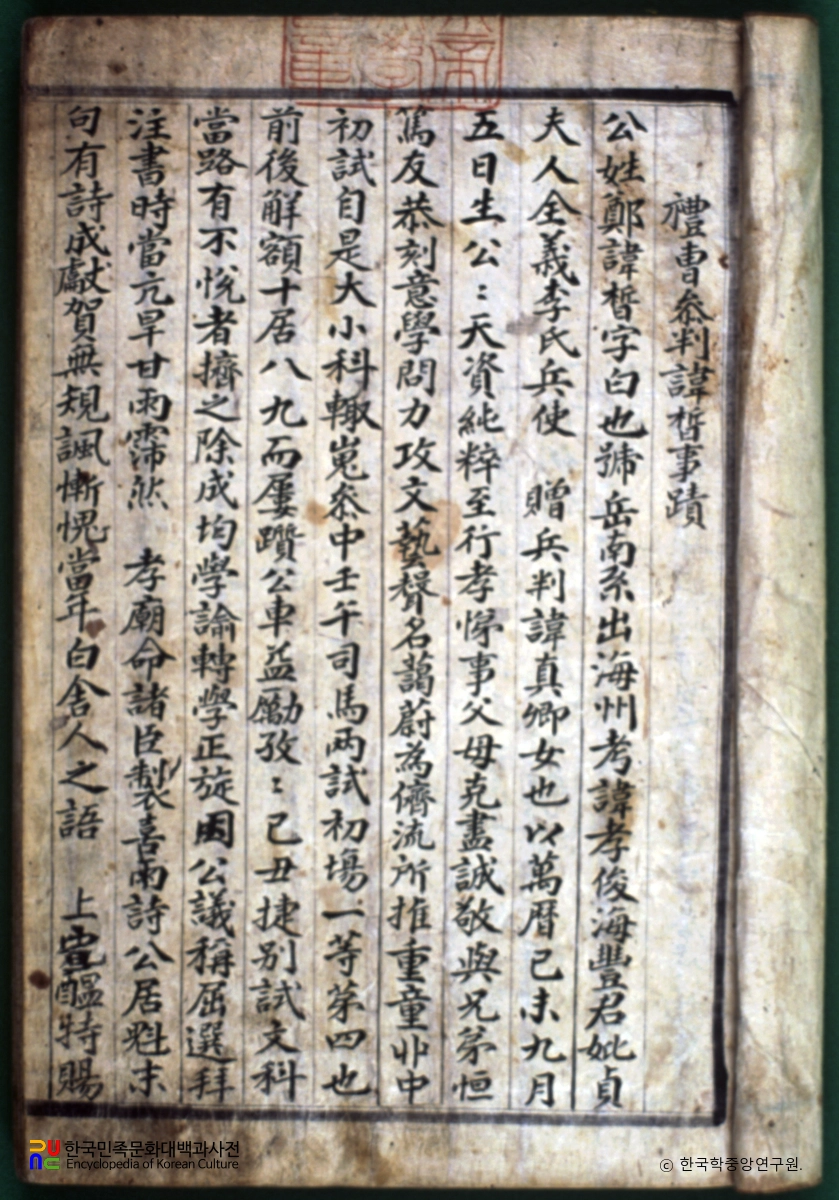 禮曹叅判諱晳事蹟
公姓鄭諱晳字白也號岳南系出海州考諱孝俊海豐君妣貞
夫人全義李氏兵使 贈兵判諱真卿女也以萬曆己未九月
五日生公〻天資純粹至行孝悌事父母克盡誠敬與兄弟恒
篤友恭刻意學問力攻文藝聲名藹蔚為儕流所推重童丱中
初試自是大小科輙嵬叅中壬午司馬兩試初場一等苐四也
前後觧額十居八九而屢躓公車益勵孜〻己丑捷别試文科
當路有不悅者擠之除成均學諭轉學正旋因公議稱屈選拜
注書時當亢旱甘雨霈然 孝廟命諸臣製喜雨詩公居魁末
句有詩成獻賀無規諷慚愧當年白舍人之語 上宣醞特賜
한국민족문화대백과사전
Encyclopedia of Korean Culture
© 한국학중앙연구원.